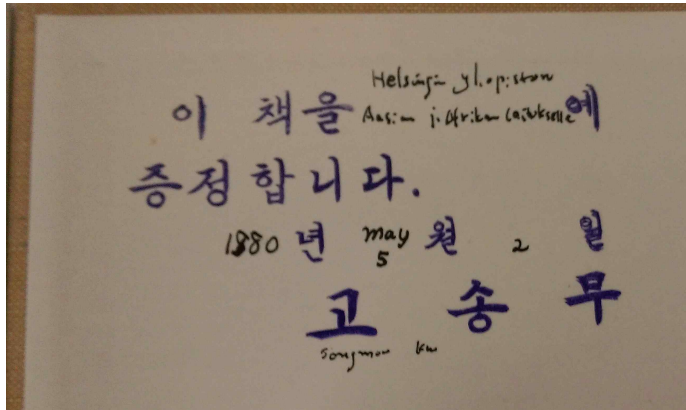 Helsingin yliopiston
이 책을 Aasian j. Afrikan laitokselle 에
증정합니다.
1980 년 may 월 2 일
5
고 송 무
Songmoo Kho